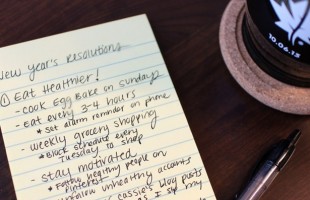 New Year's Resolutions
① Eat Healthier!
- Cook Egg Bake on Sundays
- Eat every 3-4 hours
* set alarm reminder on phone
- weekly grocery shopping
* Block schedule every
Tuesday to shop
- stay motivated
* Follow healthy people on
Pinterest
unhealthy accounts
cassie's blog posts
10.06.13